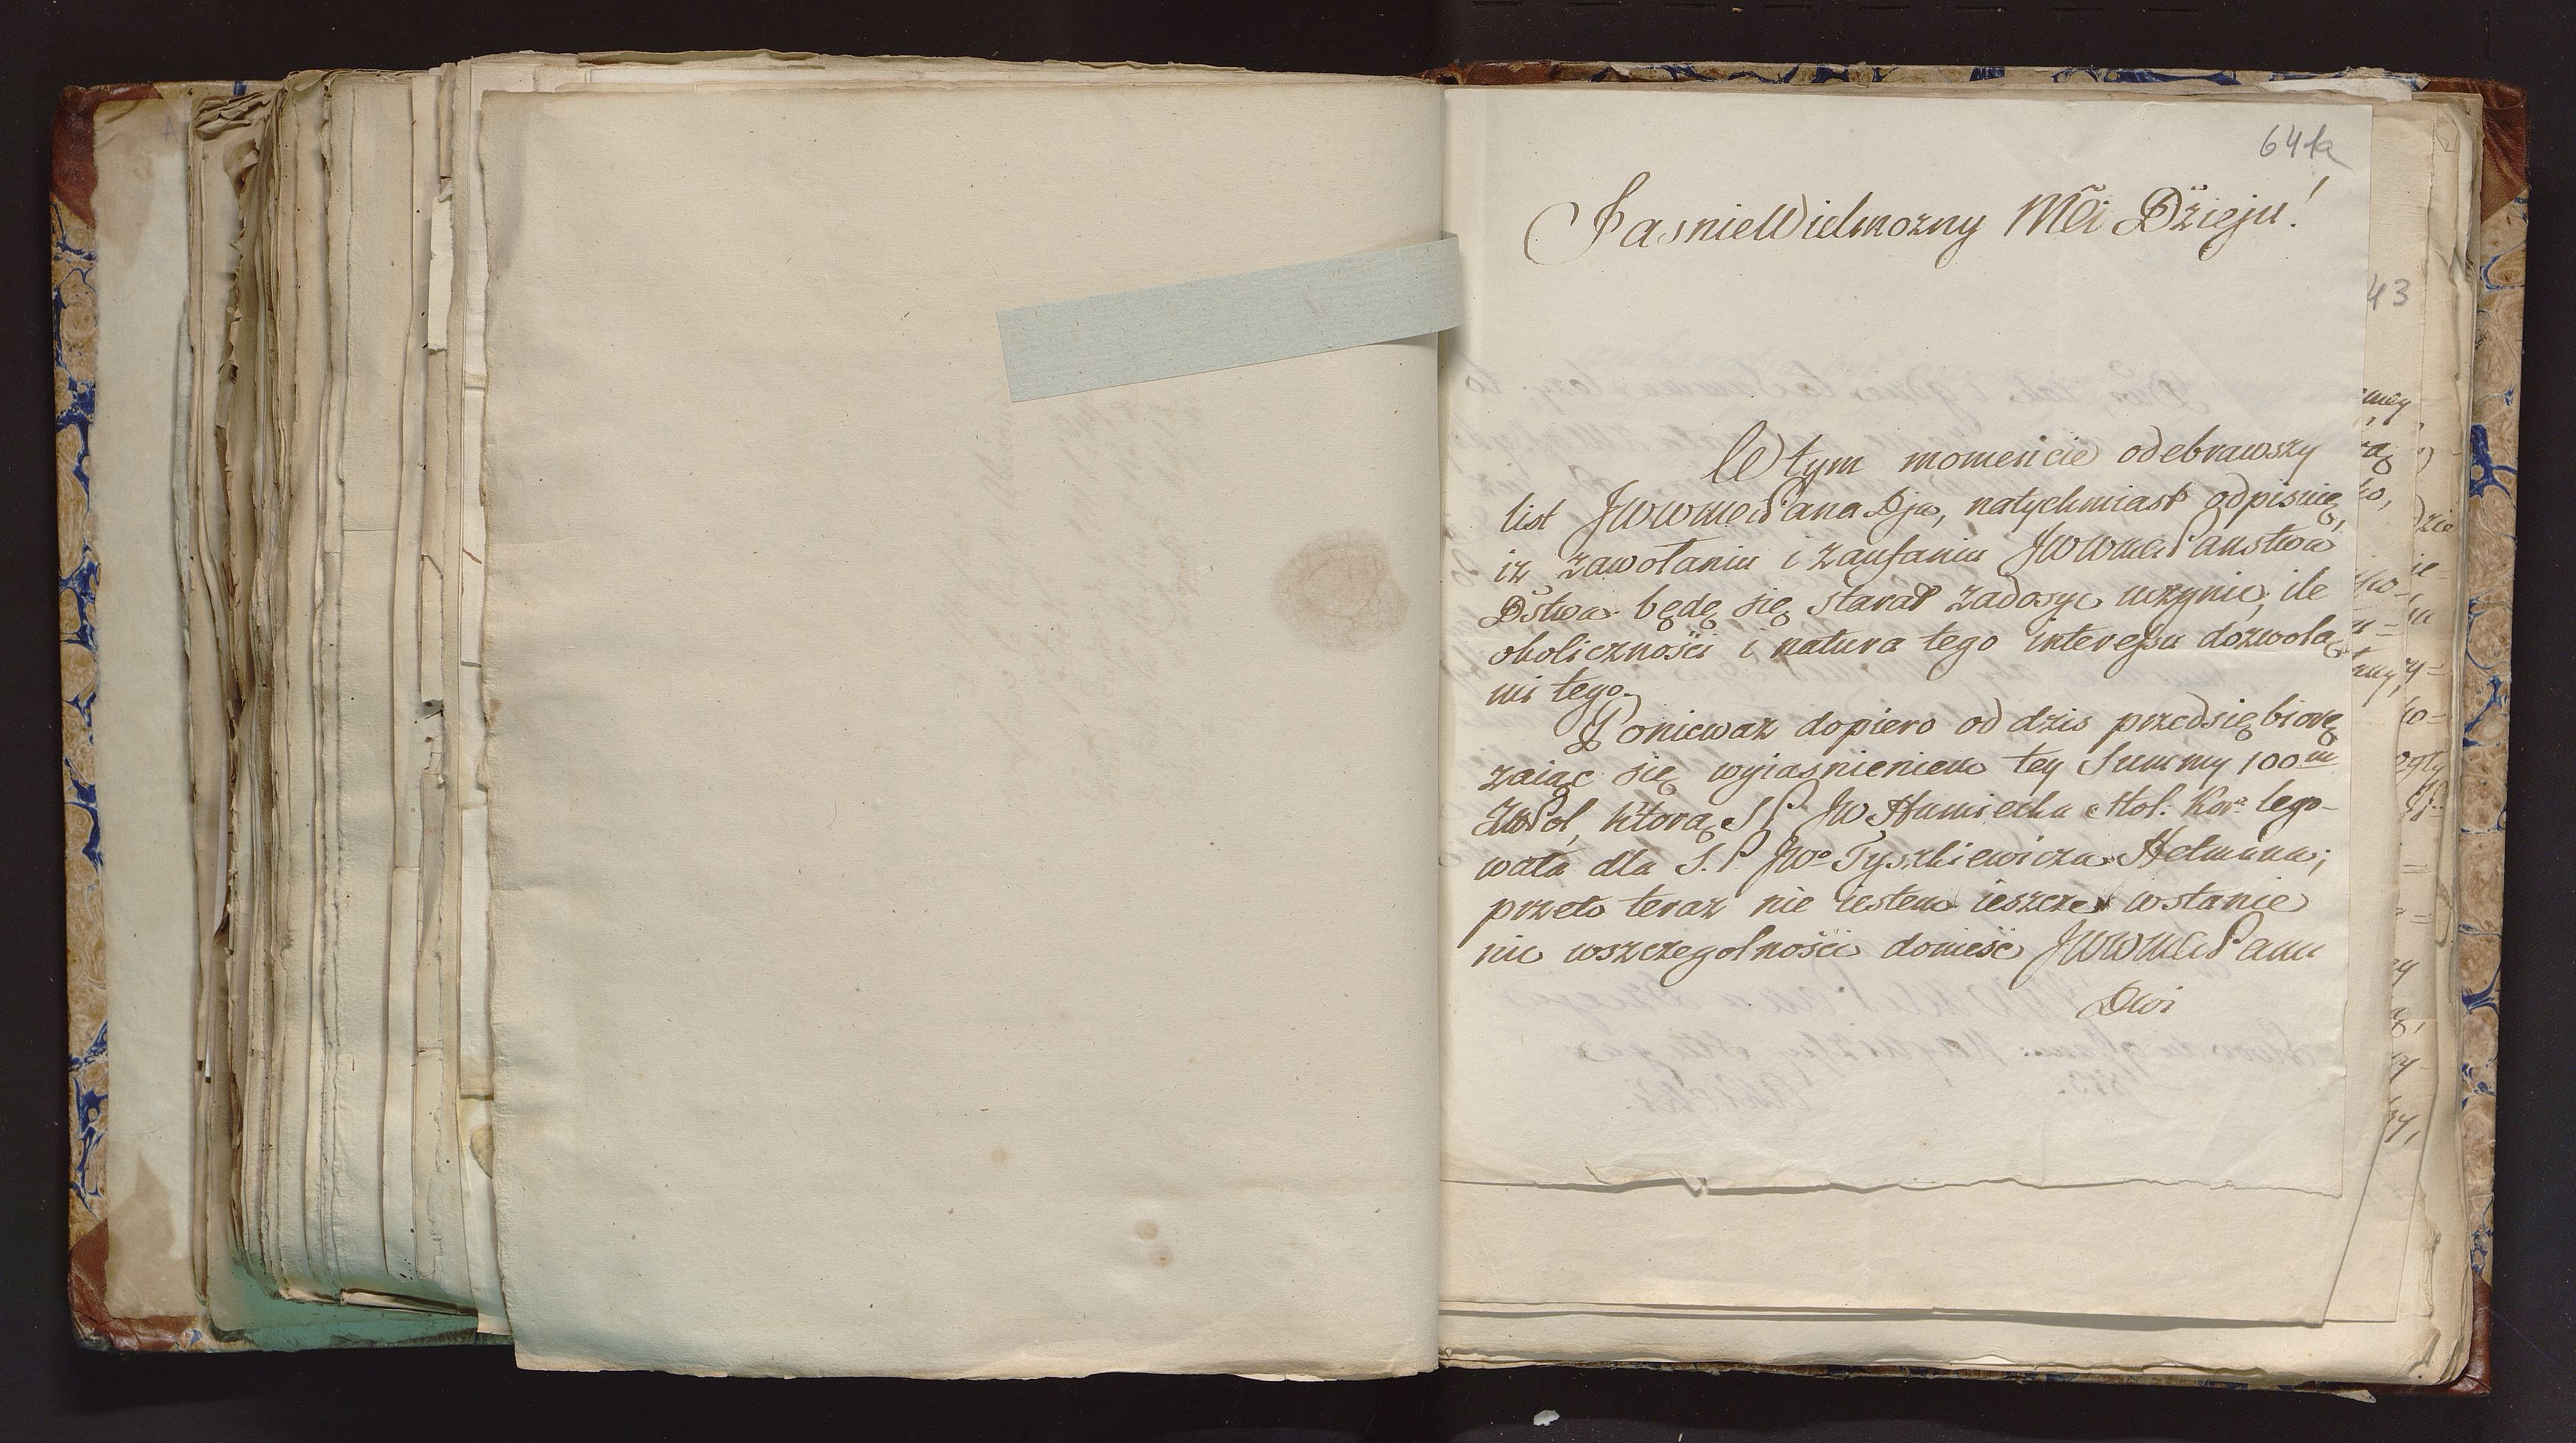 64 fa
JasnieWielmozny Mći Dżieju!
43
W tym momencie odebrawszy
list JWWmći Pana Dja, natychmiast odpisuię,
iż zawołaniu i zaufaniu JWWmći Panstwa
Dstwa będę się starał zadosyc uczynic, ile
okoliczności i natura tego interessu dozwolą
mi tego.
Poniewaz dopiero od dzis przedsiębiorę
zaiąc się wyiasnieniem tey Summy 100m
ZłPol, ktorą S P JW Humiecka Stol: Kor: lego-
wała dla S. P JWo Tyszkiewicza Hetmana;
przeto teraz nie iestem ieszcze wstanie
nic wszczegolności donieść JWWmći Panu
Dwi